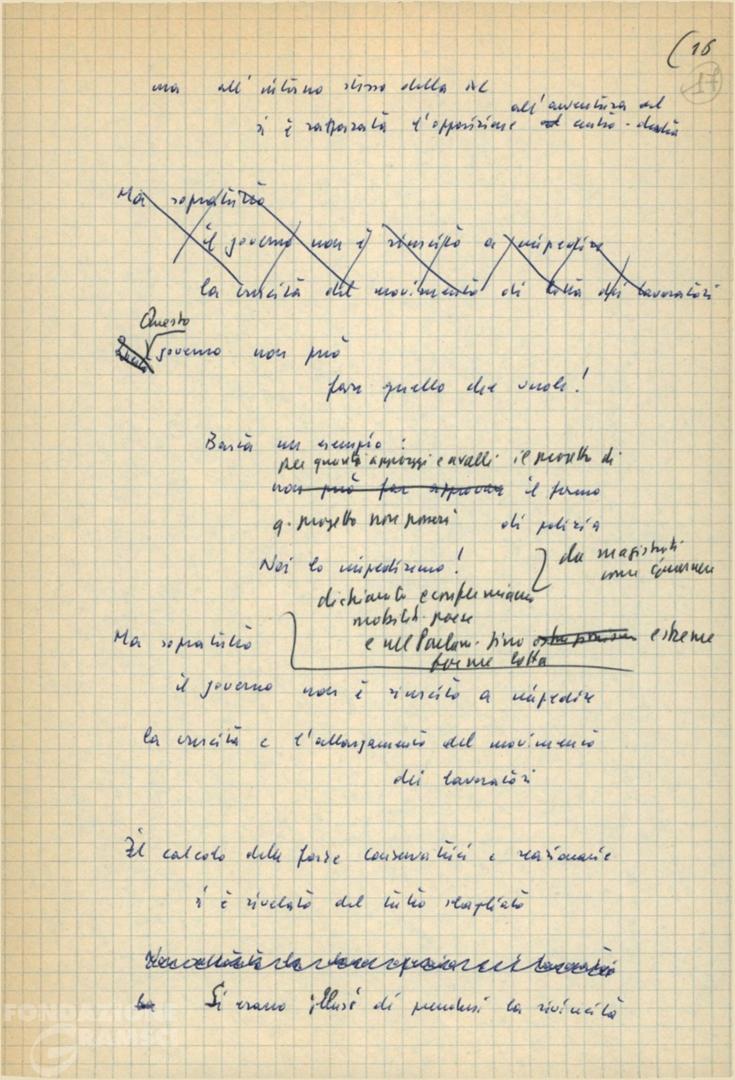 (16
17
ma all'interno stesso della DC
all'avventura del
si è rafforzata l'opposizione centro-destra
Ma sopratutto
il governo non è riuscito a impedire
la crescita del movimento di lotta dei lavoratori
Questo
governo non può
fare quello che vuole!
Basta un esempio:
per quanti appoggi e avalli il progetto di
non può far approvare il fermo
q. progetto non passerà di polizia
Noi lo impediremo!
da magistrati
come
dichiarato e confermiamo
mobilit. paese
e nel Parlam. fino estreme
forme lotta
Ma sopratutto
il governo non è riuscito a impedire
la crescita e l'allargamento del movimento
dei lavoratori
Il calcolo delle forze conservatrici e reazionarie
si è rivelato del tutto sbagliato
Si erano illuse di prendersi la rivincita
FONDAZIONE
GRAMSCI